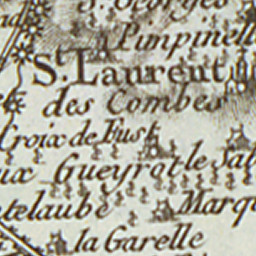 S. Georges
Pimpinell
St. Laurent
des Combes
Croix de Fust
ux Gueyrot le Sal
telaube Marqu
la Garelle